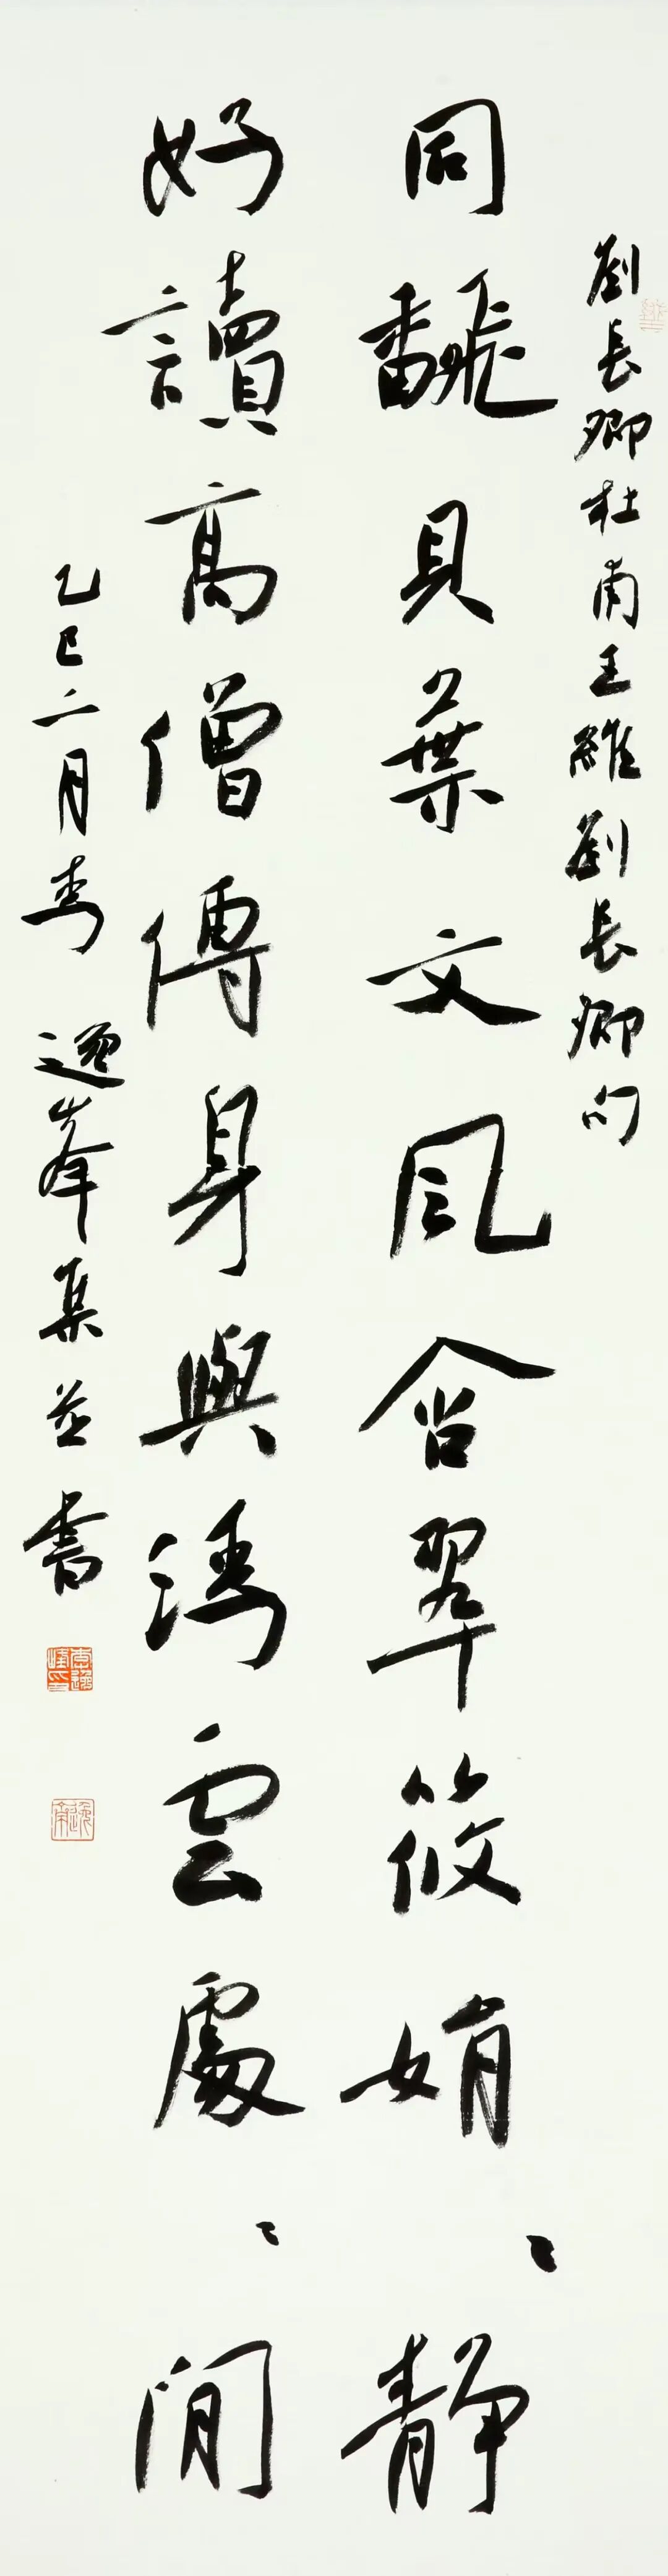 劉長卿杜甫王維劉長卿句
同翻貝葉文風含翠筱娟〻靜
好讀高僧傳身與浮雲處〻閒
乙巳二月春 逸峯集並書